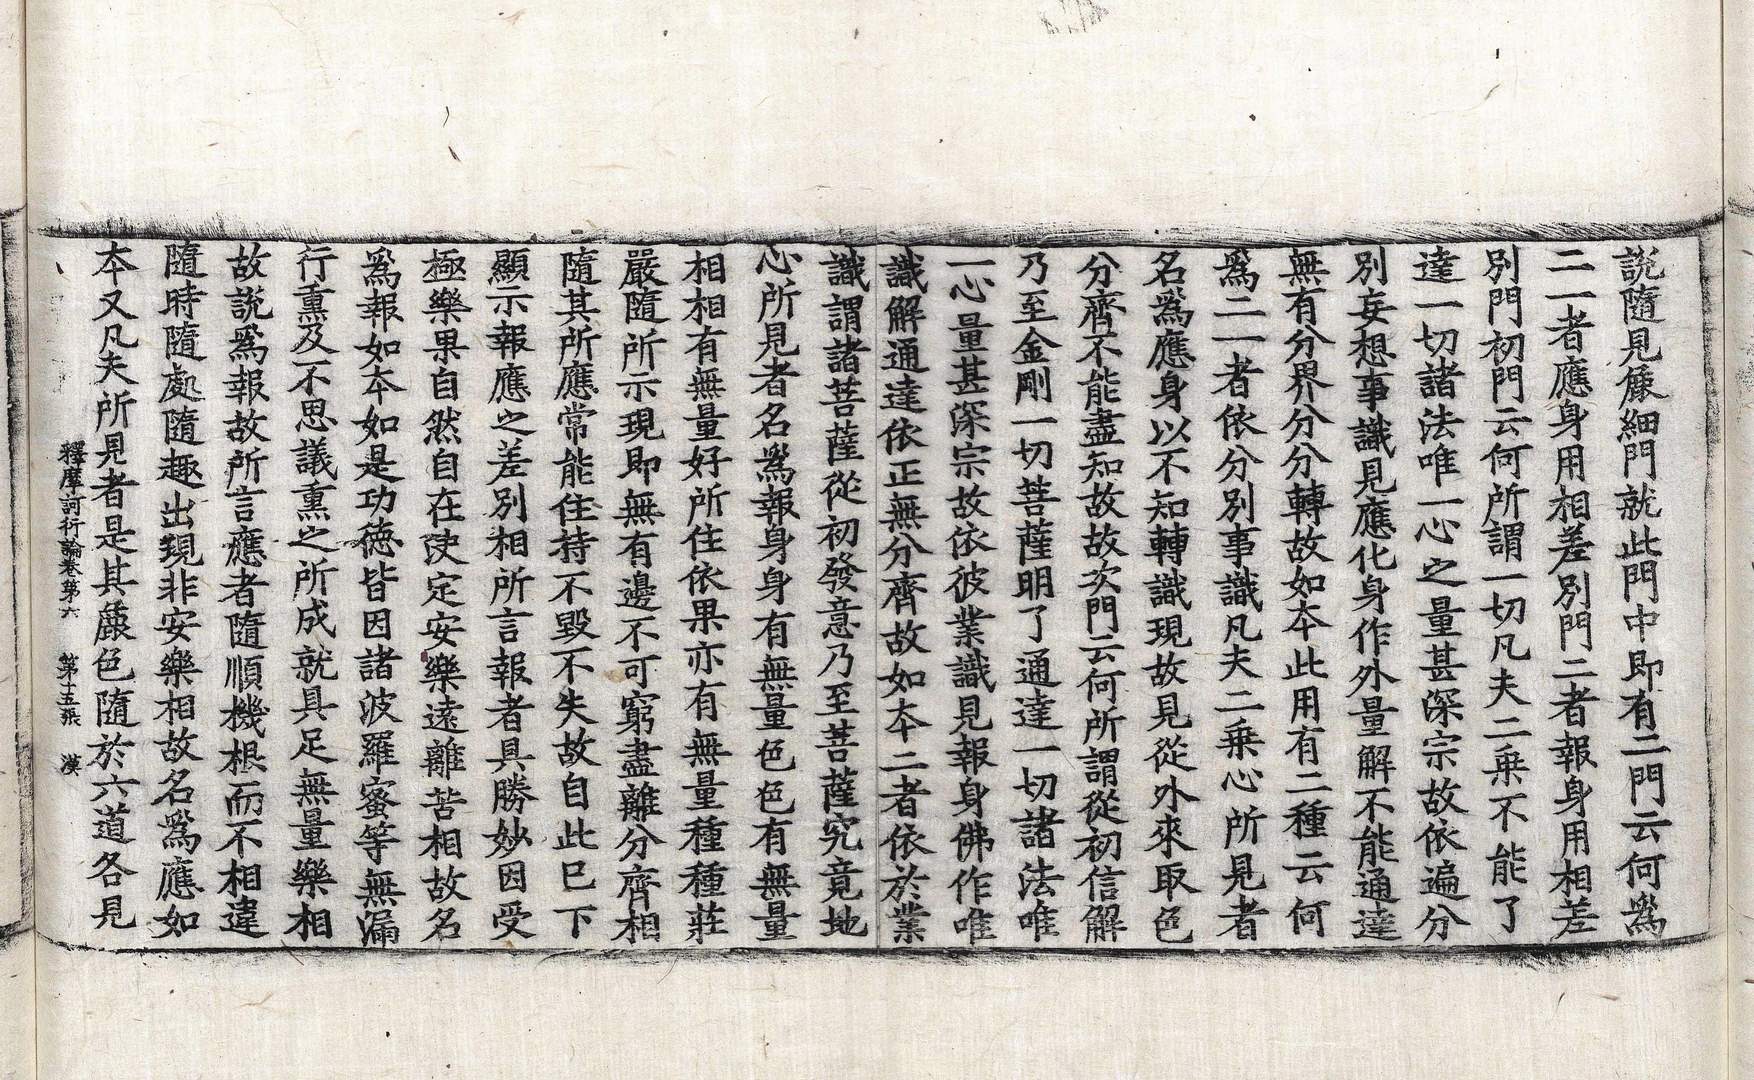 說隨見麁細門就此門中即有二門云何爲
二一者應身用相差別門二者報身用相差
別門初門云何所謂一切凡夫二乘不能了
達一切諸法唯一心之量甚深宗故依遍分
別妄想事識見應化身作外量解不能通達
無有分界分分轉故如本此用有二種云何
爲二一者依分別事識凡夫二乘心所見者
名爲應身以不知轉識現故見從外來取色
分齊不能盡知故故次門云何所謂從初信解
乃至金剛一切菩薩明了通達一切諸法唯
一心量甚深宗故依彼業識見報身佛作唯
識解通達依正無分齊故如本二者依於業
識謂諸菩薩從初發意乃至菩薩究竟地
心所見者名爲報身身有無量色色有無量
相相有無量好所住依果亦有無量種種莊
嚴隨所示現即無有邊不可窮盡離分齊相
隨其所應常能住持不毀不失故自此已下
顯示報應之差別相所言報者具勝妙因受
極樂果自然自在決定安樂遠離苦相故名
爲報如本如是功德皆因諸波羅蜜等無漏
行熏及不思議熏之所成就具足無量樂相
故說爲報故所言應者隨順機根而不相違
隨時隨處隨趣出現非安樂相故名爲應如
本又凡夫所見者是其麁色隨於六道各見
釋摩訶衍論卷第六 第十五張 漢